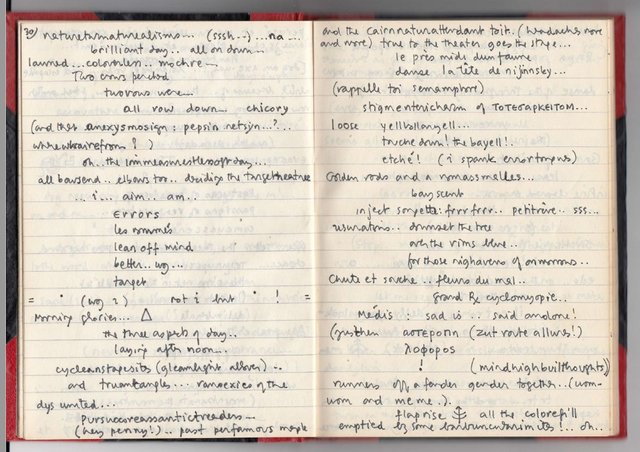 30) naturetarnaturealisms... (sssh..) ...na...
brilliant day.. all on down..
launed... colorblen.. mochire...
Two crows period
two rous wore...
all row down.. chicory
(and then anexysmosign: pepsin netsjn...?...
whrewhrairefrom?)
oh.. the immeasurestlessofday...
all bawsend.. elbows too.. dreidize the targetheatree
...i... aim.. am..
Errors
les nommés
lean off mind
better.. wg...
target
= · (wg ?) not i but · ! =
Morning glories... △
the three aspects of day..
laying after noon...
cycleanstapesites (gleamlight allows)..
and truantangles... ranoexico of the
dys united...
Pursuocreassantictreaders..
(hey penny!).. past perfamous maple
and the cairn natur attendant to it. (headaches more
and more) true to the theater goes the stage...
le près midi dun faune
danse la tête de nijinnsky...
(rappelle toi semamphore)
stigmentericharm of TOTECAPKEITOM...
loose yellballonyell...
touche down! the bayell!..
etché! (i spank errortongues)
Golden rods and a nomassmalles...
bayscent
inject sorpette: frrr frrr.. petitrève.. sss...
usinators.. drumset the tree
are the rims blue..
for those nighavens of onmorrows..
Chute et souche.. fleurs du mal..
grand & cyclomyopic..
Médis = sad is.. said andone!
(justhen αστεροπη (zut route allures!)
λοφορος
! (mindnighbuilthoughts))
runners off a fonder gender together.. (wom-
uom and meme.).
flaprise ⚓ all the colorefill
emptied by some barbuncularimites!... oh...